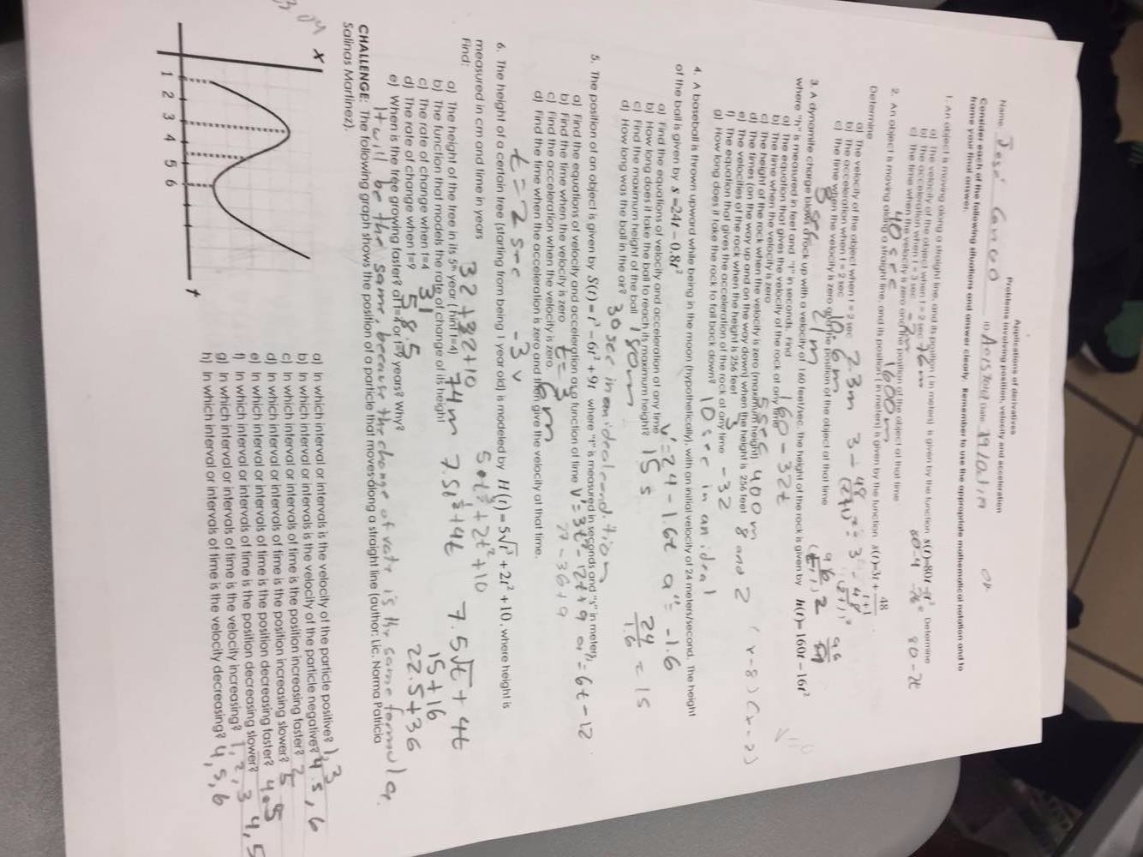 Applications of derivatives
Problems involving position, velocity and acceleration
Name José
Consider each of the following situations and answer clearly. Remember to use the appropriate mathematical notation and to frame your final answer.
1. An object is moving along a straight line, and its position (in meters) is given by the function s(t)=80t-t² Determine
a) The velocity of the object when t = 2 sec 76m 80-4 80-2t
b) The acceleration when t = 3 sec -2m
c) The time when the velocity is zero and the position of the object at that time
40 sec 1600m
2. An object is moving along a straight line, and its position (in meters) is given by the function s(t)=3t+ 48/t+1
Determine
a) The velocity of the object when t = 2 sec 2.3m
b) The acceleration when t = 2 sec
c) The time when the velocity is zero and the position of the object at that time
3 sec 21m
3. A dynamite charge blows a rock up with a velocity of 160 feet/sec. The height of the rock is given by h(t)=160t-16t²
where "h" is measured in feet and "t" in seconds. Find
a) The equation that gives the velocity of the rock at any time 160-32t
b) The time when the velocity is zero 5 sec
c) The height of the rock when the velocity is zero (maximum height) 400 m
d) The times (on the way up and on the way down) when the height is 256 feet 8 and 2 (x-8)(x-2)
e) The velocities of the rock when the height is 256 feet
f) The equation that gives the acceleration of the rock at any time -32
g) How long does it take the rock to fall back down? 10 sec in an ideal
v=0
4. A baseball is thrown upward while being in the moon (hypothetically), with an initial velocity of 24 meters/second. The height
of the ball is given by s =24t-0.8t²
a) Find the equations of velocity and acceleration at any time v'=24-1.6t a''=-1.6
b) How long does it take the ball to reach its maximum height? 15 s 24/1.6 = 15
c) Find the maximum height of the ball 180m
d) How long was the ball in the air? 30 sec in an ideal condition
5. The position of an object is given by S(t)=t³-6t²+9t where "t" is measured in seconds and "s" in meters
a) Find the equations of velocity and acceleration as a function of time v'=3t²-12t+9 a''=6t-12
b) Find the time when the velocity is zero 27-36+9
c) Find the acceleration when the velocity is zero 6m
d) Find the time when the acceleration is zero and then give the velocity at that time.
t=2 sec -3 v
6. The height of a certain tree (starting from being 1 year old) is modeled by H(t)=5√t³+2t²+10, where height is
measured in cm and time in years
Find: 32+32+10
a) The height of the tree in its 5th year (hint t=4) 74m 7.5√t+4t
b) The function that models the rate of change of its height
c) The rate of change when t=4 31 15+16
d) The rate of change when t=9 58.5 22.5+36
e) When is the tree growing faster? at t=4 or t=9 years? Why?
It will be the same, because the change of rate is the same formula.
CHALLENGE: The following graph shows the position of a particle that moves along a straight line (author: Lic. Norma Patricia
Salinas Martínez).
x
1 2 3 4 5 6
t
a) In which interval or intervals is the velocity of the particle positive? 1, 3
b) In which interval or intervals is the velocity of the particle negative? 4, 5, 6
c) In which interval or intervals of time is the position increasing faster? 2
d) In which interval or intervals of time is the position increasing slower? 5
e) In which interval or intervals of time is the position decreasing faster? 4
f) In which interval or intervals of time is the position decreasing slower? 3
g) In which interval or intervals of time is the velocity increasing? 1, 2, 3
h) In which interval or intervals of time is the velocity decreasing? 4, 5, 6